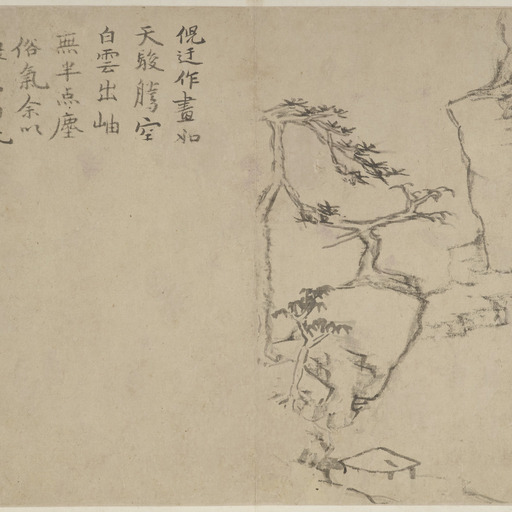 倪迂作畫如
天駿騰空
白雲出岫
無半点塵
俗氣余以